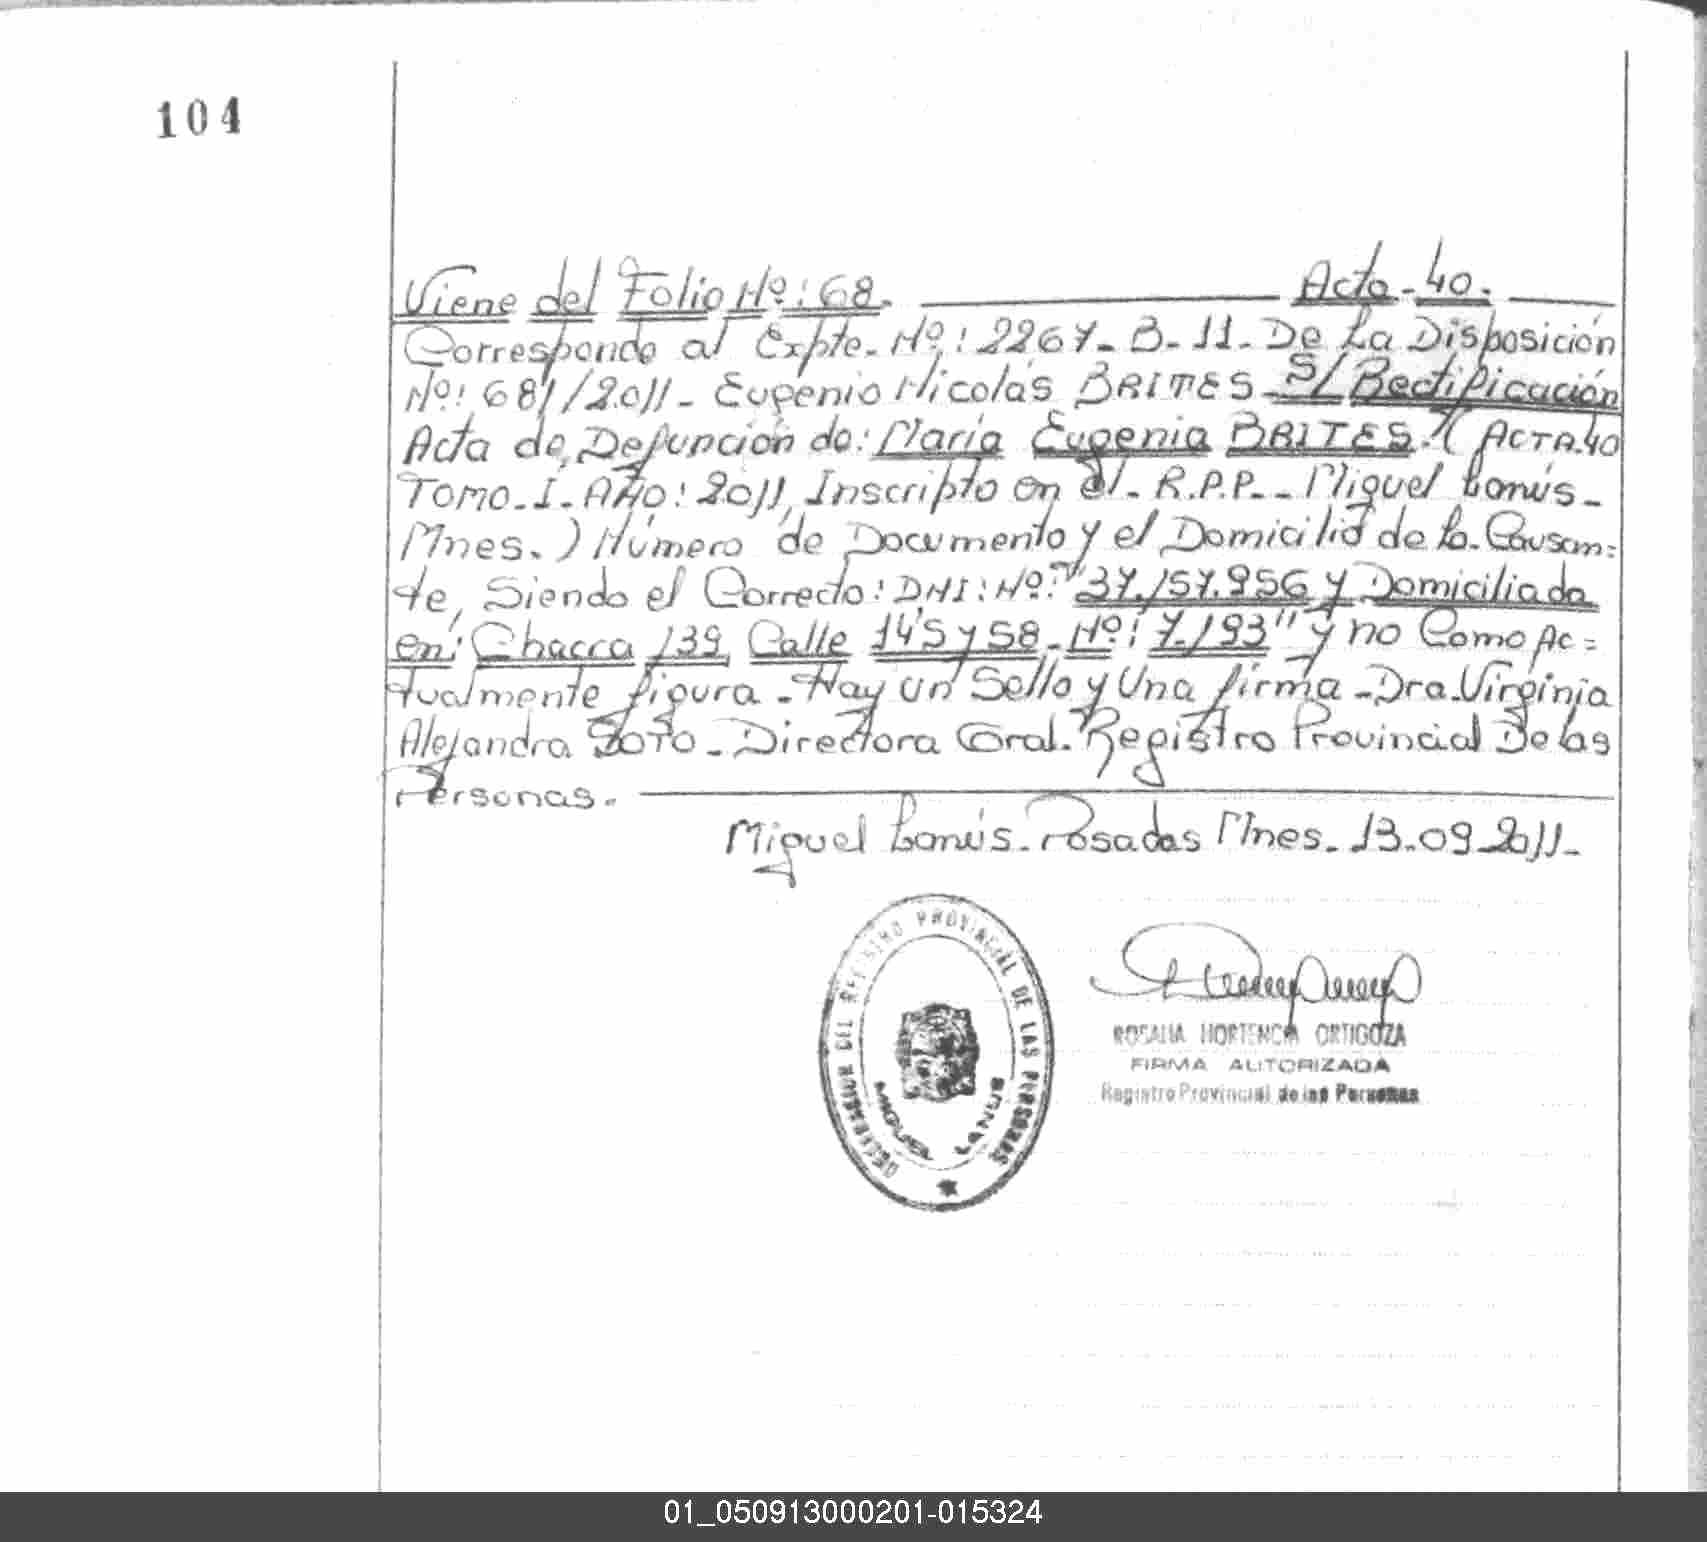 104
Viene del Folio Nº: 68. Acta - 40.
Corresponde al Expte. Nº: 2267 - B - 11 - De La Disposición
Nº: 681/2011 - Eugenio Nicolás BRITES - S/ Rectificación
Acta de Defunción de: María Eugenia BRITES. (ACTA.40
TOMO - I - AÑO: 2011, Inscripto en el - R.P.P. - Miguel Lanús -
Mnes. ) Número de Documento y el Domicilio de la Causan=
te, Siendo el Correcto: DNI: Nº: "37.157.956 y Domiciliada
en: Chacra 139 Calle 145 y 58 - Nº: 7.193" y no Como Ac=
tualmente figura - Hay un Sello y Una firma - Dra. Virginia
Alejandra SOTO - Directora Gral. Registro Provincial De las
Personas.
Miguel Lanús - Posadas Mnes. 13-09-2011 -
REGISTRO PROVINCIAL DE LAS PERSONAS
MIGUEL LANUS
ROSALIA HORTENCIA ORTIGOZA
FIRMA AUTORIZADA
Registro Provincial de las Personas
01_050913000201-015324